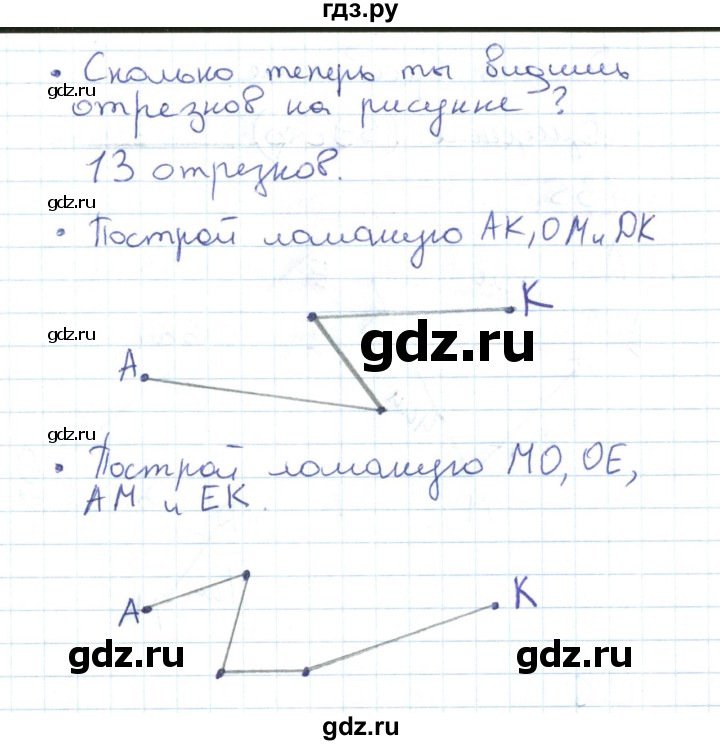 гдз.ру
• Сколько теперь ты видишь
gdz.ru
отрезков на рисунке?
13 отрезков.
gdz.ru
• Построй ломаную АК, ОМ и DК
К
gdz.ru
gdz.ru
А
gdz.ru
• Построй ломаную МО, ОЕ,
gdz.ru
АМ и ЕК.
А
К
gdz.ru
gdz.ru
gdz.ru